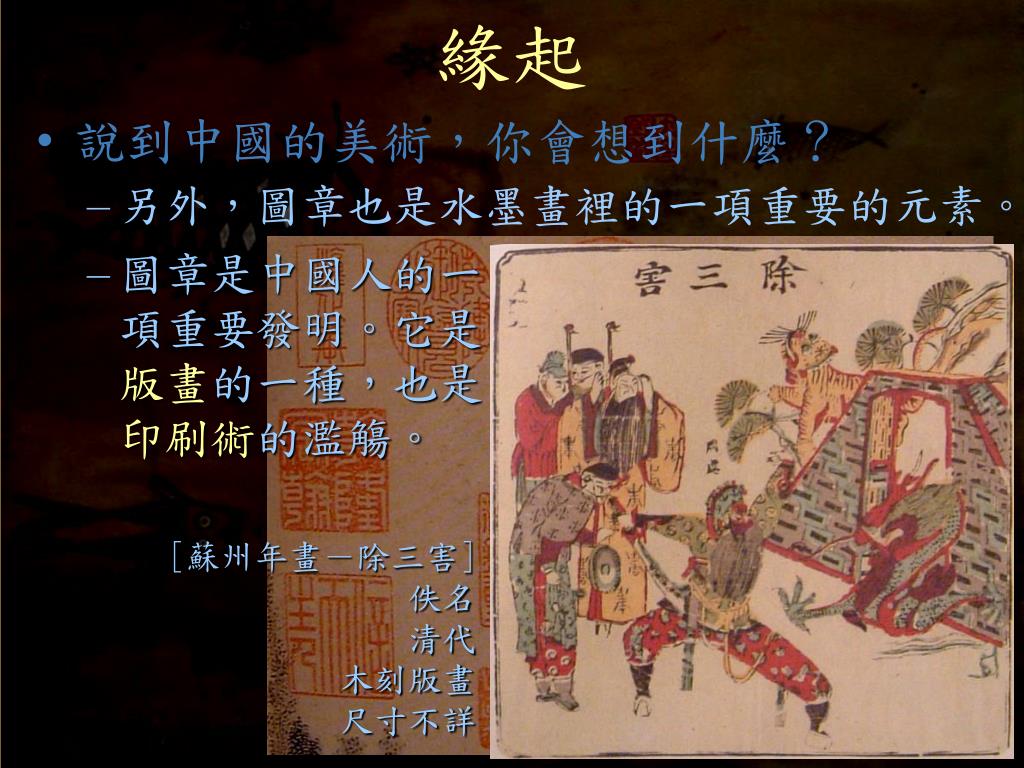 緣起
• 說到中國的美術，你會想到什麼？
– 另外，圖章也是水墨畫裡的一項重要的元素。
– 圖章是中國人的一
項重要發明。它是
版畫的一種，也是
印刷術的濫觴。
[蘇州年畫－除三害]
佚名
清代
木刻版畫
尺寸不詳
害三除